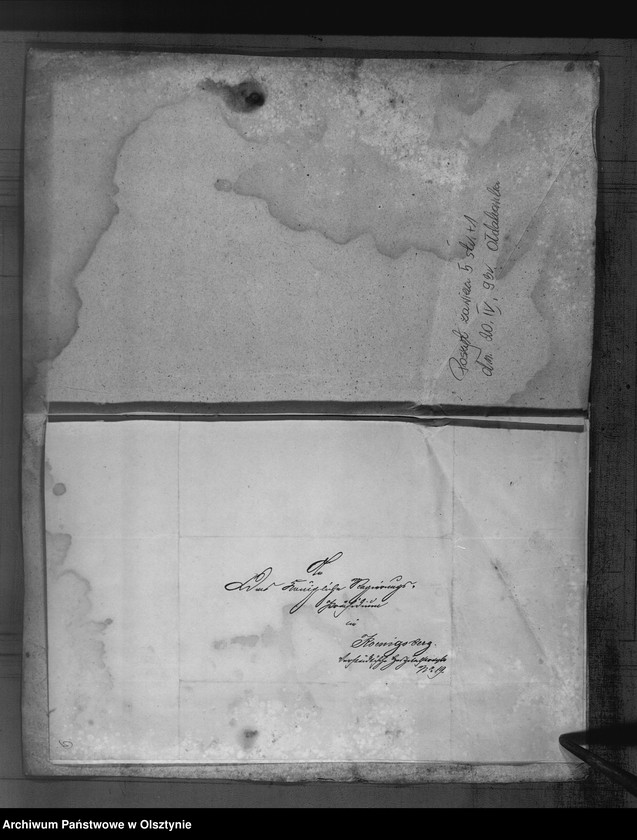 Poszyt zawiera 5 stron
dn. 20. IV. 92r.
An
Das Königliche Regierungs-
Präsidium
in
Koenigsberg.
No 19.
Archiwum Państwowe w Olsztynie